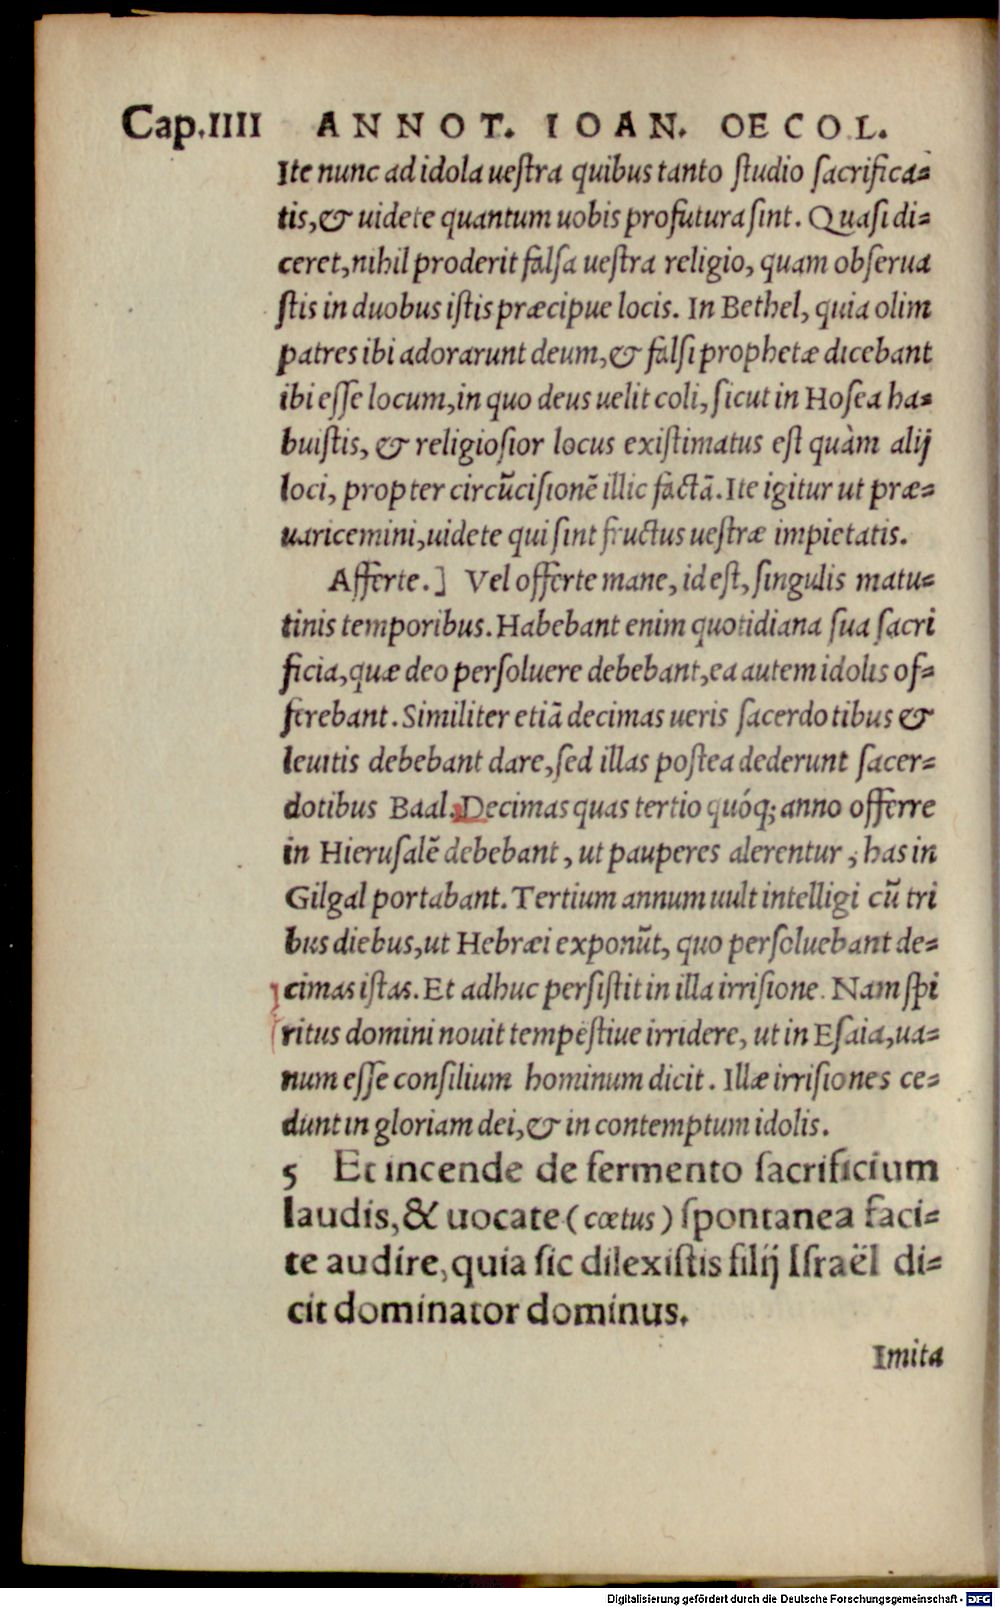 Cap.IIII ANNOT. IOAN. OECOL.
Ite nunc ad idola ueſtra quibus tanto ſtudio ſacrifica=
tis,& uidete quantum uobis profutura ſint. Quaſi di=
ceret,nihil proderit falſa ueſtra religio, quam obſerua
ſtis in duobus iſtis præcipue locis. In Bethel, quia olim
patres ibi adorarunt deum,& falſi prophetæ dicebant
ibi eſſe locum,in quo deus uelit coli, ſicut in Hoſea ha=
buiſtis, & religioſior locus exiſtimatus eſt quàm alij
loci, propter circũciſionẽ illic factã. Ite igitur ut præ=
uaricemini,uidete qui ſint fructus ueſtræ impietatis.
Afferte.] Vel offerte mane, id eſt, ſingulis matu=
tinis temporibus. Habebant enim quotidiana ſua ſacri
ficia,quæ deo perſoluere debebant,ea autem idolis of=
ferebant. Similiter etiã decimas ueris ſacerdotibus &
leuitis debebant dare,ſed illas poſtea dederunt ſacer=
dotibus Baal. Decimas quas tertio quóq; anno offerre
in Hieruſalẽ debebant, ut pauperes alerentur, has in
Gilgal portabant. Tertium annum uult intelligi cũ tri
bus diebus,ut Hebræi exponũt, quo perſoluebant de=
cimas iſtas. Et adhuc perſiſtit in illa irriſione. Nam ſpi
ritus domini nouit tempeſtiue irridere, ut in Eſaia,ua=
num eſſe conſilium hominum dicit. Illæ irriſiones ce=
dunt in gloriam dei,& in contemptum idolis.
5 Et incende de fermento ſacrificium
laudis,& uocate (cœtus) ſpontanea faci=
te audire,quia ſic dilexiſtis filij Iſraël di=
cit dominator dominus.
Imita
Digitalisierung gefördert durch die Deutsche Forschungsgemeinschaft - DFG